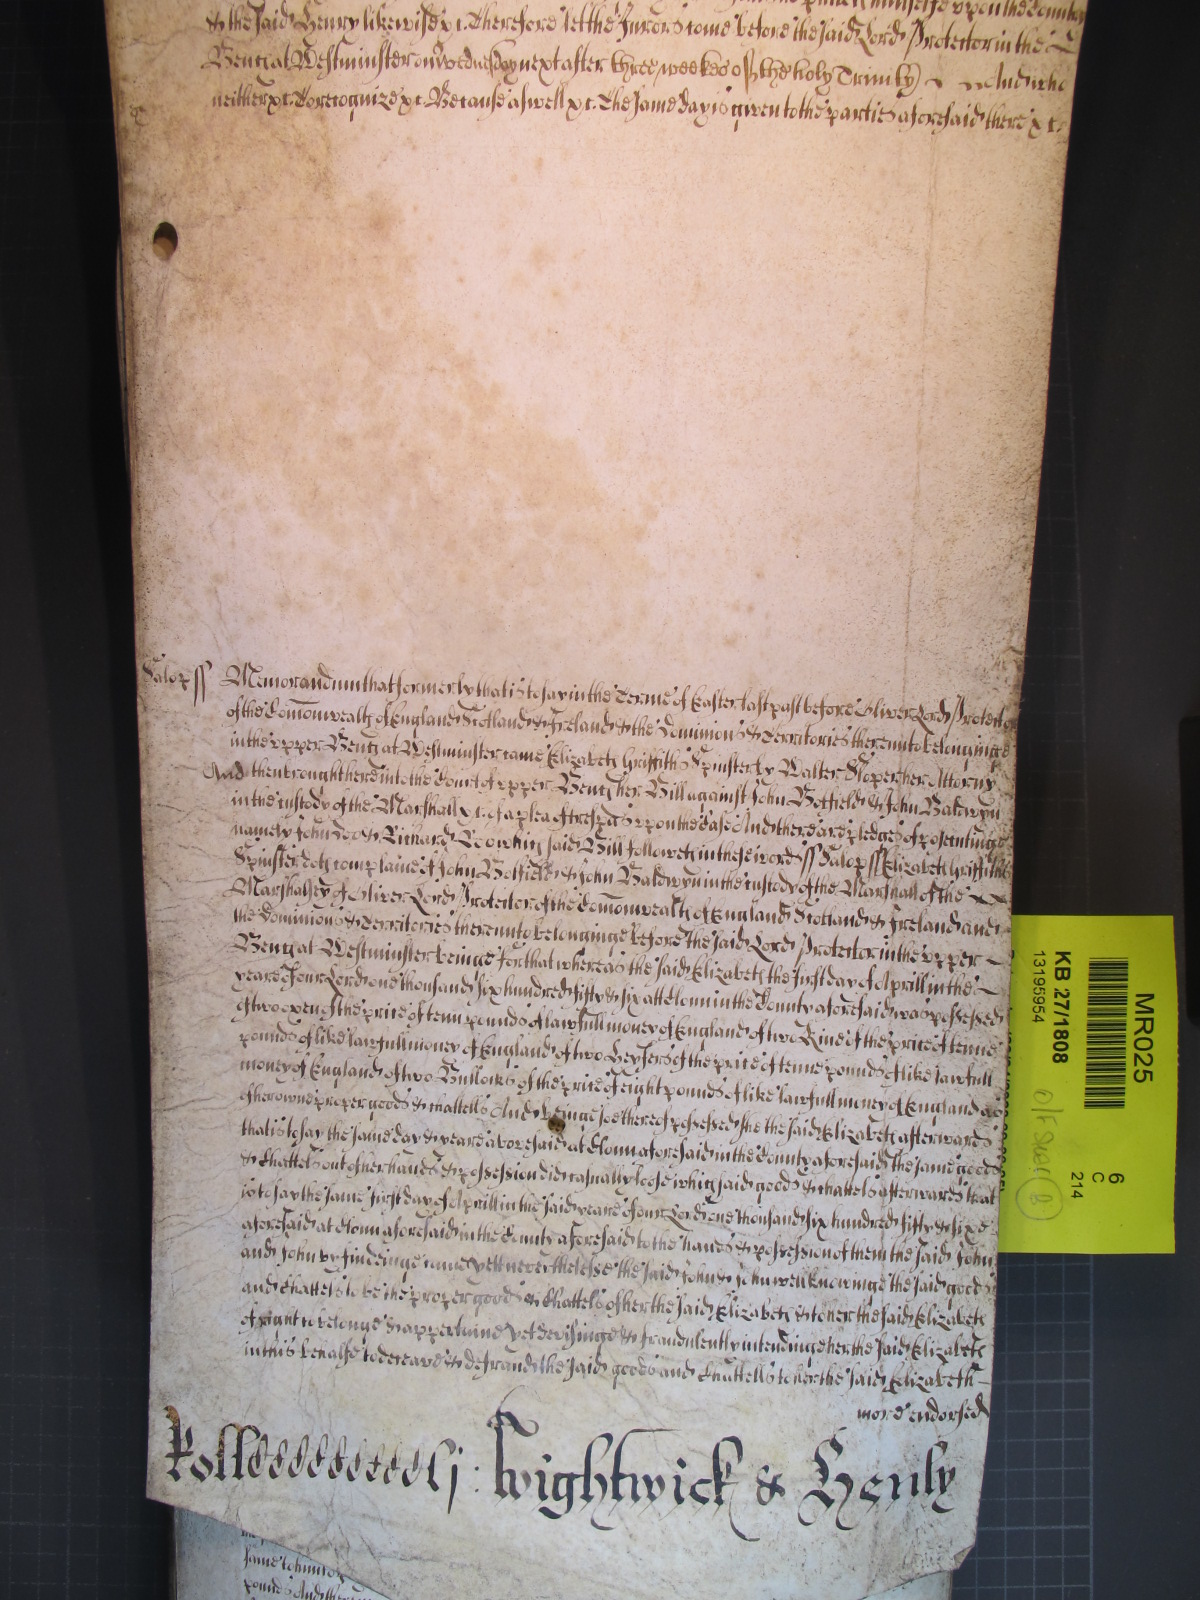 himselfe upon the Country
& the said Henry likewise &c. Therefore let the Jurors come before the said Lord Protector in the
Bench at Westminster on wednesday next after three weekes of the holy Trinity And who
neither &c. To recognize &c. Because aswell &c. The same day is given to the parties aforesaid there &c.
Salop ss Memorandum that formerly that is to say in the Terme of Easter last past before Oliver Lord Protector
of the Comonwealth of England Scotland & Ireland & the Dominions & Territories thereunto belonginge
in the upper Bench at Westminster came Elizabeth Griffiths Spinster by Walter Sloper her Attorny
And then brought here into the Court of upper Bench her Bill against John Botfield & John Baldwyn
in the custody of the Marshall &c. of a plea of trespas upon the Case And there are pledges of prosecutinge
namely John Doo & Richard Roo which said Bill followeth in these words ss Salop ss Elizabeth Griffiths
Spinster doth complaine of John Botfield & John Baldwyn in the custody of the Marshall of the
Marshalsey of Oliver Lord Protector of the Comonwealth of England Scotland & Ireland and
the Dominions & Territories thereunto belonginge before the said Lord Protector in the upper
Bench at Westminster beinge For that whereas the said Elizabeth the first day of Aprill in the
yeare of our Lord one thousand six hundred fifty & six att Clonn in the County aforesaid was possessed
of two oxen of the price of tenn pounds of lawfull money of England of two Kine of the price of tenne
pounds of like lawfull money of England of two Heyfers of the price of tenne pounds of like lawfull
money of England of two Bullocks of the price of eight pounds of like lawfull money of England as
of her owne proper goods & chattells And beinge soe thereof possessed she the said Elizabeth afterwards
that is to say the same day & yeare abovesaid at Clonn aforesaid in the County aforesaid the same goods
& Chattels out of her hands & possession did casually loose which said goods & chattels afterwards that
is to say the same first day of Aprill in the said yeare of our Lord one thousand six hundred fifty & sixe
aforesaid at Clonn aforesaid in the County aforesaid to the hands & possession of them the said John
and John by findeinge came yett neverthelesse the said John & John well knowinge the said goods
and Chattels to be the proper goods & Chattels of her the said Elizabeth & to her the said Elizabeth
of right to belonge & appertaine Yet devisinge & fraudulently intendinge her the said Elizabeth
in this behalfe to deceave & defraud the said goods and Chattells to her the said Elizabeth
more endorsed
Wightwick & Henly
same
pounds And there
MR025
KB 27/1808
13195954
6
C
214